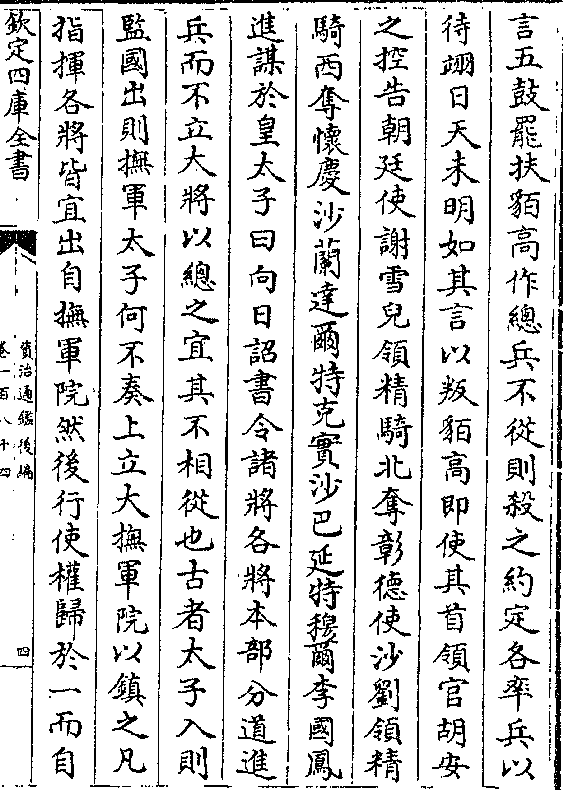 言五鼓罷扶貊高作總兵不從則殺之約定各率兵以
待翊日天未明如其言以叛貊高即使其首領官胡安
之控告朝廷使謝雪兒領精騎北奪彰德使沙劉領精
騎西奪懷慶沙蘭達爾特克實沙巴延特穆爾李國鳳
進謀於皇太子曰向日詔書令諸將各將本部分道進
兵而不立大將以總之宜其不相從也古者太子入則
監國出則撫軍太子何不奏上立大撫軍院以鎮之凡
指揮各將皆宜出自撫軍院然後行使權歸於一而自
欽定四庫全書
資治通鑑後編
卷一百八十四
四